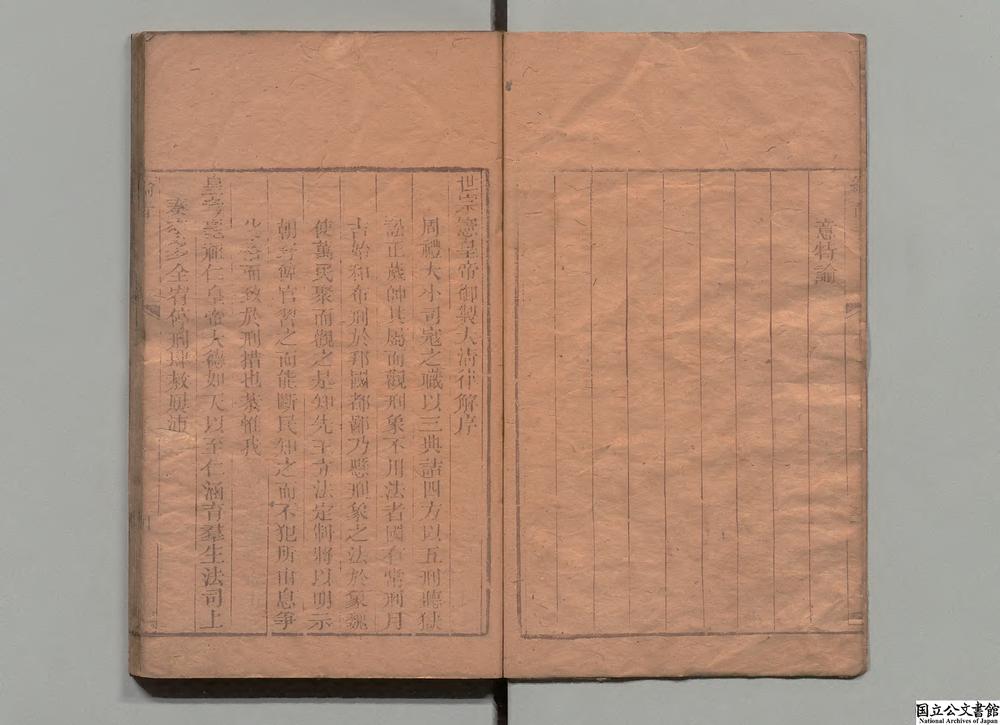 意特諭
世宗憲皇帝御製大清律解序
周禮大小司寇之職以三典詰四方以五刑聽獄
訟正歲帥其屬而觀刑象不用法者國有常刑月
吉始和布刑於邦國都鄙乃懸刑象之法於象魏
使萬民聚而觀之是知先王立法定制將以明示
朝野俾官習之而能斷民知之而不犯所由息爭
化俗而致於刑措也恭惟我
皇考聖祖仁皇帝大德如天以至仁涵育羣生法司上
奏率多全宥停刑肆赦屢沛
国立公文書館
National Archives of Japan